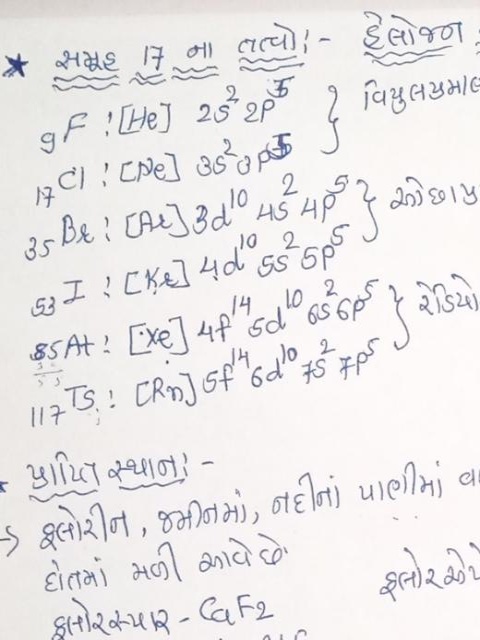 ★ સમૂહ 17 ના તત્વો :- હેલોજન
₉F : [He] 2s² 2p⁵ } વિપુલપ્રમા
₁₇Cl : [Ne] 3s² 3p⁵
₃₅Br : [Ar] 3d¹⁰ 4s² 4p⁵ } ઓછા પ્ર
₅₃I : [Kr] 4d¹⁰ 5s² 5p⁵
₈₅At : [Xe] 4f¹⁴ 5d¹⁰ 6s² 6p⁵ } રેડિયો
₁₁₇Ts : [Rn] 5f¹⁴ 6d¹⁰ 7s² 7p⁵
પ્રાપ્તિ સ્થાન :-
→ ફ્લોરીન, જમીનમાં, નદીનાં પાણીમાં
દાંતમાં મળી આવે છે.
ફ્લોરસ્પાર - CaF₂